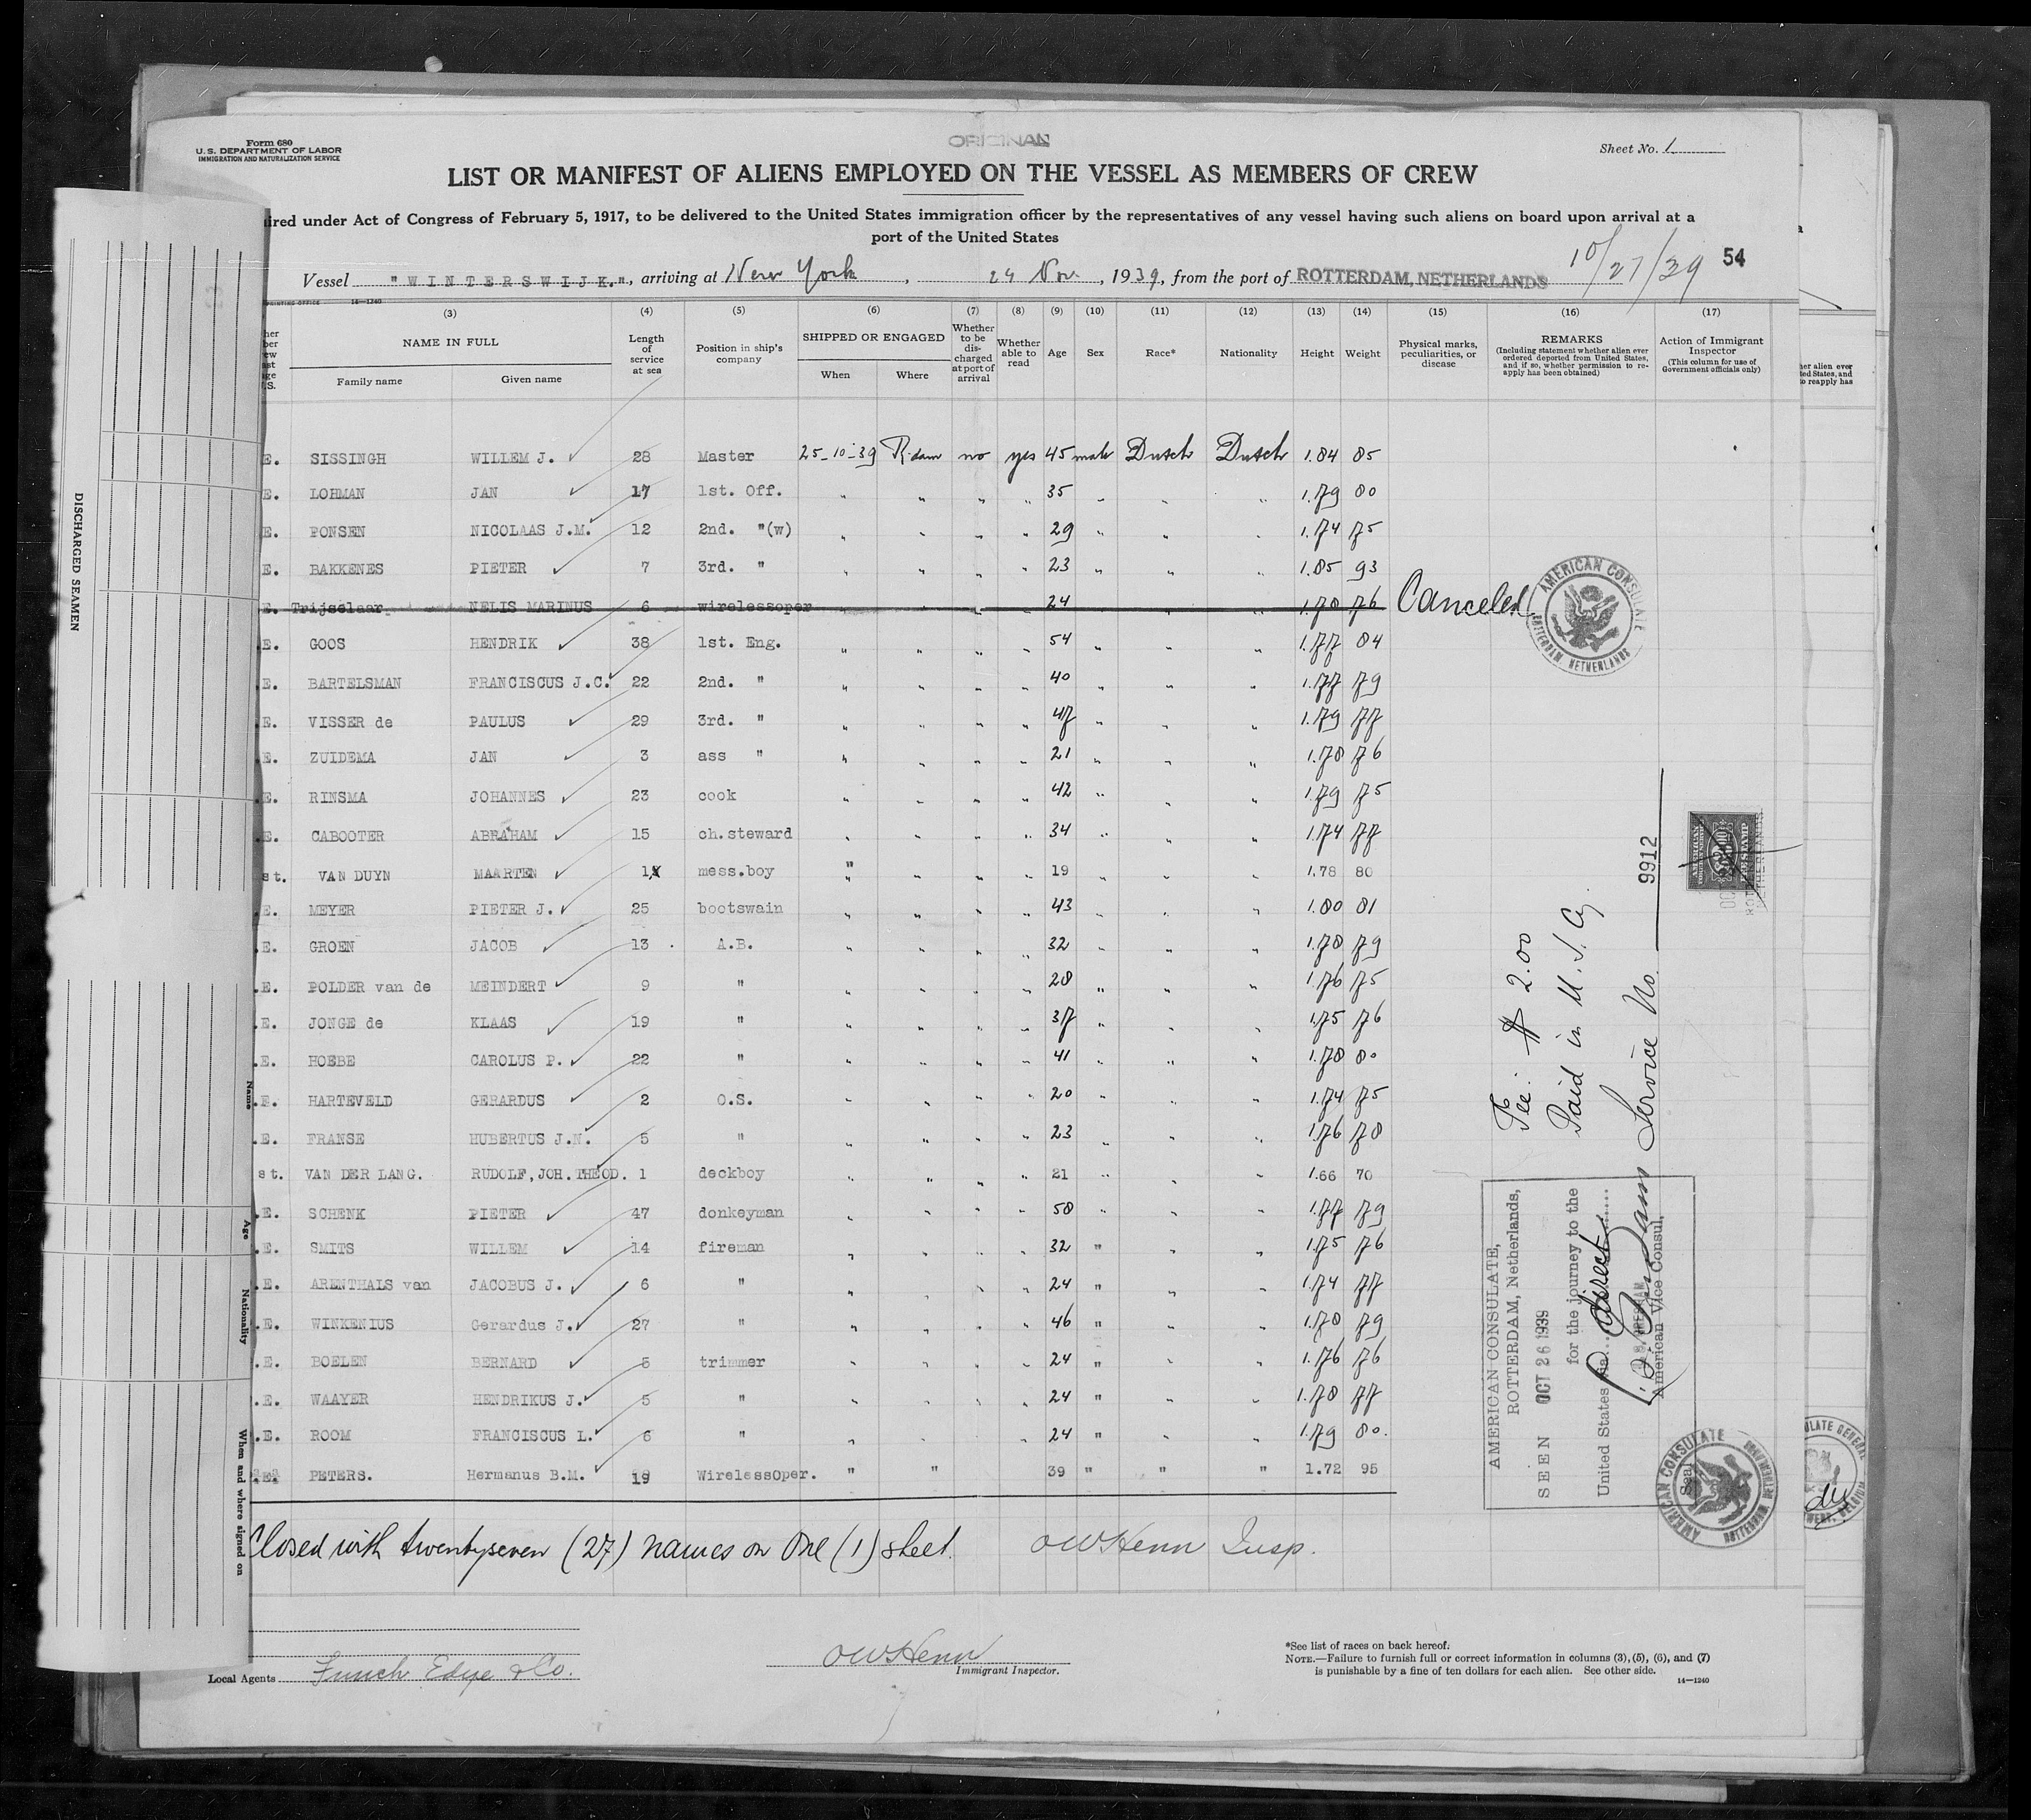 Form 680
U.S. DEPARTMENT OF LABOR
IMMIGRATION AND NATURALIZATION SERVICE
ORIGINAL
Sheet No. 1
LIST OR MANIFEST OF ALIENS EMPLOYED ON THE VESSEL AS MEMBERS OF CREW
ired under Act of Congress of February 5, 1917, to be delivered to the United States immigration officer by the representatives of any vessel having such aliens on board upon arrival at a
port of the United States
10/27/39 54
Vessel "WINTERSWIJK.", arriving at New York, 24 Nov., 1939, from the port of ROTTERDAM, NETHERLANDS
PRINTING OFFICE 14—1240
(3) (4) (5) (6) (7) (8) (9) (10) (11) (12) (13) (14) (15) (16) (17)
NAME IN FULL
Family name Given name
Length of service at sea
Position in ship's company
SHIPPED OR ENGAGED
When Where
Whether to be discharged at port of arrival
Whether able to read
Age Sex Race* Nationality Height Weight
Physical marks, peculiarities, or disease
REMARKS
(Including statement whether alien ever ordered deported from United States, and if so, whether permission to reapply has been obtained)
Action of Immigrant Inspector
(This column for use of Government officials only)
E. SISSINGH WILLEM J. 28 Master 25-10-39 R'dam no yes 45 male Dutch Dutch 1.84 85
E. LOHMAN JAN 17 1st. Off. " " " " 35 " " " 1.79 80
E. PONSEN NICOLAAS J.M. 12 2nd. "(w) " " " " 29 " " " 1.74 75
E. BAKKENES PIETER 7 3rd. " " " " " 23 " " " 1.85 93
E. Trijselaar NELIS MARINUS 6 wirelessoper " " " 24 " " " 1.78 76 Canceled
E. GOOS HENDRIK 38 1st. Eng. " " " " 54 " " " 1.77 84
E. BARTELSMAN FRANCISCUS J.C. 22 2nd. " " " " " 40 " " " 1.77 79
E. VISSER de PAULUS 29 3rd. " " " " " 47 " " " 1.79 77
E. ZUIDEMA JAN 3 ass " " " " " 21 " " " 1.78 76
E. RINSMA JOHANNES 23 cook " " " " 42 " " " 1.79 75
E. CABOOTER ABRAHAM 15 ch.steward " " " " 34 " " " 1.74 77
st. VAN DUYN MAARTEN 1 mess.boy " " " " 19 " " " 1.78 80
E. MEYER PIETER J. 25 bootswain " " " " 43 " " " 1.80 81
.E. GROEN JACOB 13 A.B. " " " " 32 " " " 1.78 79
.E. POLDER van de MEINDERT 9 " " " " " 28 " " " 1.76 75
.E. JONGE de KLAAS 19 " " " " " 37 " " " 1.75 76
.E. HOEBE CAROLUS P. 22 " " " " " 41 " " " 1.78 80
.E. HARTEVELD GERARDUS 2 O.S. " " " " 20 " " " 1.74 75
.E. FRANSE HUBERTUS J.N. 5 " " " " " 23 " " " 1.76 78
st. VAN DER LANG. RUDOLF,JOH.THEOD. 1 deckboy " " " " 21 " " " 1.66 70
.E. SCHENK PIETER 47 donkeyman " " " " 58 " " " 1.77 79
.E. SMITS WILLEM 14 fireman " " " " 32 " " " 1.75 76
.E. ARENTHALS van JACOBUS J. 6 " " " " " 24 " " " 1.74 77
.E. WINKENIUS Gerardus J. 27 " " " " " 46 " " " 1.78 79
.E. BOELEN BERNARD 5 trimmer " " " " 24 " " " 1.76 76
.E. WAAYER HENDRIKUS J. 5 " " " " " 24 " " " 1.78 77
.E. ROOM FRANCISCUS L. 6 " " " " " 24 " " " 1.79 80.
.E. PETERS. Hermanus B.M. 19 Wirelessoper. " " 39 " " " 1.72 95
AMERICAN CONSULATE
ROTTERDAM NETHERLANDS
Fee: $ 2.00
Paid in U.S. Cy.
Service No. 9912
AMERICAN CONSULATE,
ROTTERDAM, Netherlands,
SEEN OCT 26 1939
for the journey to the
United States via direct
American Vice Consul.
Seal
AMERICAN CONSULATE
ROTTERDAM NETHERLANDS
Closed with twentyseven (27) names on One (1) sheet. OW Henn Insp.
Local Agents Funch Edye & Co.
OW Henn
Immigrant Inspector.
*See list of races on back hereof.
NOTE.—Failure to furnish full or correct information in columns (3), (5), (6), and (7)
is punishable by a fine of ten dollars for each alien. See other side.
14—1240
DISCHARGED SEAMEN
Name
Age
Nationality
When and where signed on